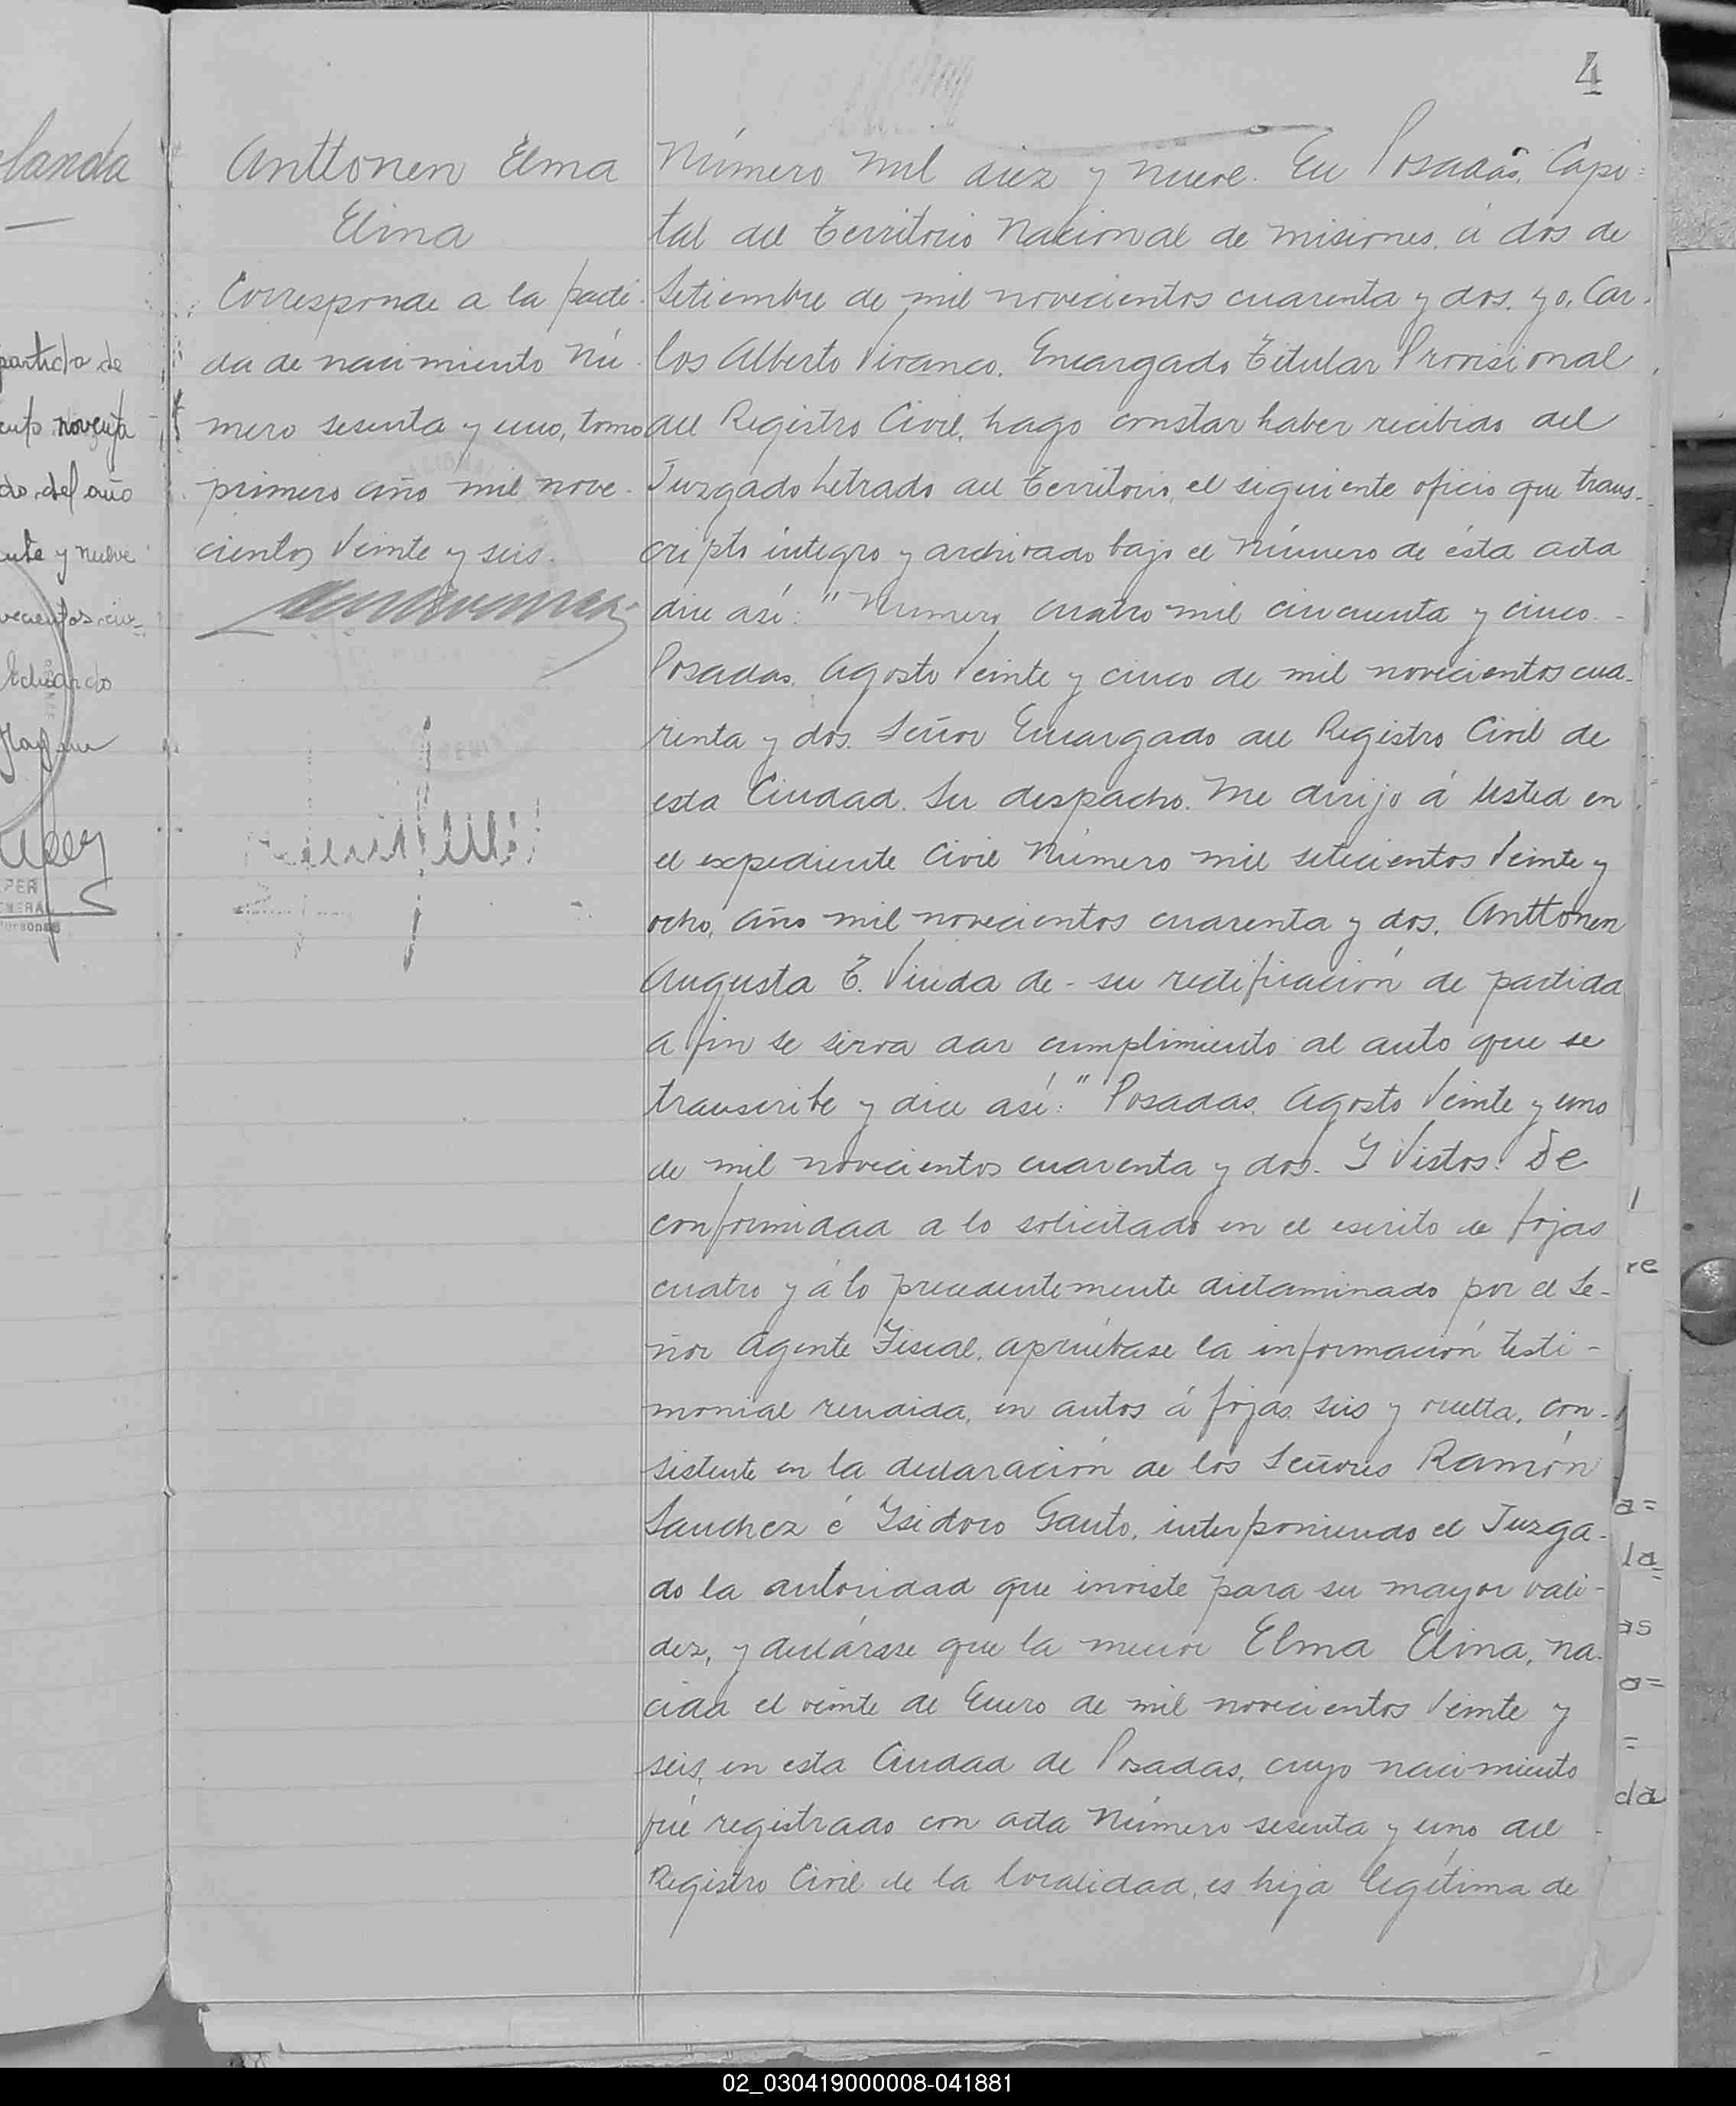 4
landa
partida de
ento noventa
do, del año
nte y nueve
vecientos cin=
Eduardo
PER
NERAL
Personas
Anttonen Elma
Elina
Corresponde a la parti-
da de nacimiento Nú-
mero sesenta y uno, tomo
primero año mil nove-
cientos Veinte y seis.
Número mil diez y nueve. En Posadas, Capi=
tal del Territorio Nacional de Misiones, á dos de
Setiembre de mil novecientos cuarenta y dos, yo, Car-
los Alberto Vivanco, Encargado Titular Provisional
del Registro Civil, hago constar haber recibido del
Juzgado Letrado del Territorio, el siguiente oficio que trans-
cripto integro y archivado bajo el Número de ésta acta
dice así: "Número cuatro mil cincuenta y cinco.-
Posadas, Agosto Veinte y cinco de mil novecientos cua-
renta y dos. Señor Encargado del Registro Civil de
esta Ciudad. Su despacho. Me dirijo á Usted en
el expediente Civil Número mil setecientos Veinte y
ocho, año mil novecientos cuarenta y dos, Anttonen
Augusta E. Viuda de - su rectificación de partida
a fin se sirva dar cumplimiento al auto que se
transcribe y dice así: "Posadas, Agosto Veinte y uno
de mil novecientos cuarenta y dos- Y Vistos: De
conformidad a lo solicitado en el escrito de fojas
cuatro y á lo precedentemente dictaminado por el Se-
ñor Agente Fiscal, apruébase la información testi-
monial rendida, en autos á fojas seis y vuelta, con-
sistente en la declaración de los Señores Ramón
Sanchez é Ysidoro Gauto, interponiendo el Juzga-
do la autoridad que inviste para su mayor vali-
dez, y declárase que la menor Elma Elina, na-
cida el veinte de Enero de mil novecientos Veinte y
seis, en esta Ciudad de Posadas, cuyo nacimiento
fué registrado con acta Número sesenta y uno del
Registro Civil de la localidad, es hija legítima de
re
a=
la=
as
a=
=
da
02_030419000008-041881